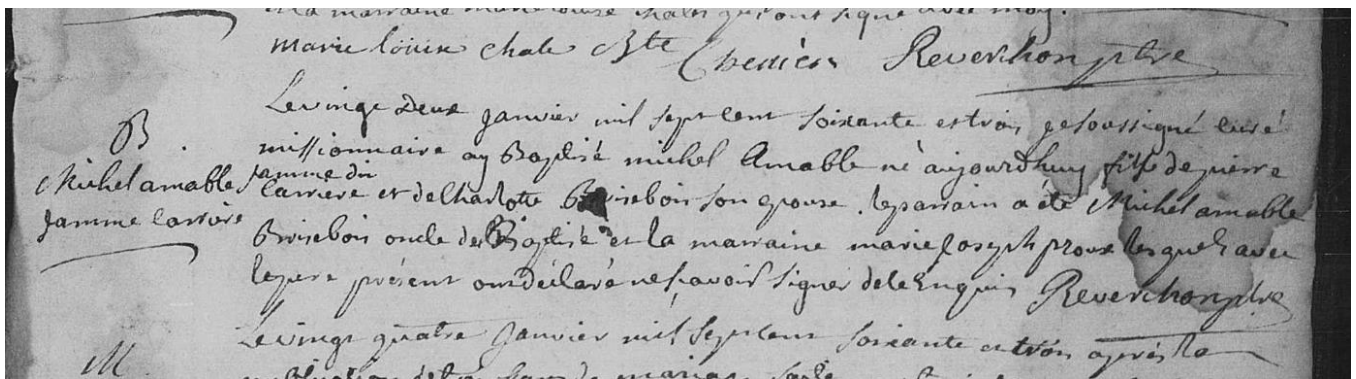 et la marraine marie louise chale qui ont signé avec moy.
marie louise chale Bte Reverchon ptre
B.
Michel amable
Jamme Carriere
Le vingt deux janvier mil sept cent soixante et trois je soussigné curé
missionnaire ay Baptisé michel Amable né aujourdhuy fils de pierre
jamme dit
Carriere et de charlotte Brisebois son epouse. le parrain a été Michel amable
Brisebois oncle du Baptisé et la marraine marie joseph proux lesquels avec
le pere présent ont déclaré ne sçavoir signer de ce Enquis Reverchon ptre
M
Le vingt quatre Janvier mil sept cent soixante et trois après la
publication de trois bans de mariage